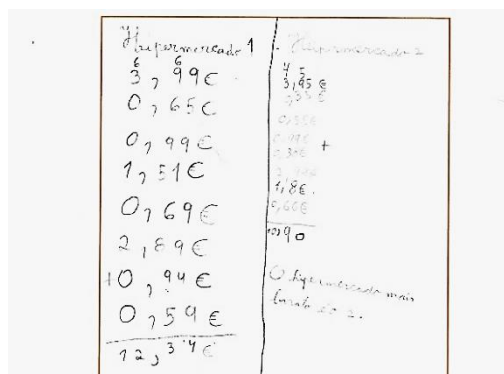 Hipermercado 1
6 6
3,99€
0,65€
0,99€
1,51€
0,69€
2,89€
+0,94€
0,59€
12,34€
Hipermercado 2
4 5
3,95€
+
1,8€.
0,66€
10,90
O hipermercado mais
barato é o 2.